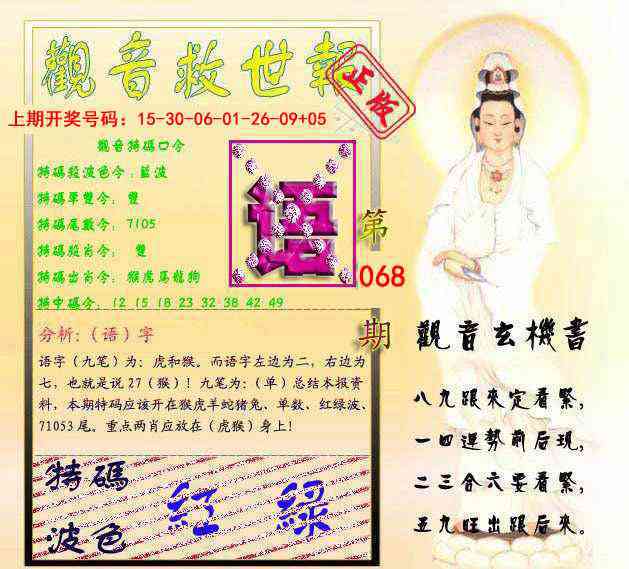 觀音救世報
正版
上期开奖号码：15-30-06-01-26-09+05
觀音特碼口令
特碼段波色令：藍波
特碼單雙令： 雙
特碼尾數令： 7105
特碼段肖令： 雙
特碼出肖令： 猴虎馬龍狗
特中碼令： 12 15 18 23 32 38 42 49
语
第
068
期
分析：（语）字
语字（九笔）为：虎和猴。而语字左边为二，右边为
七，也就是说27（猴）！九笔为：（单）总结本报资
料，本期特码应该开在猴虎羊蛇猪兔、单数、红绿波、
71053尾。重点两肖应放在（虎猴）身上！
特碼
波色
紅 綠
觀音玄機書
八九跟來定看緊，
一四運勢前后现，
二三合六要看緊，
五九旺出跟后來。